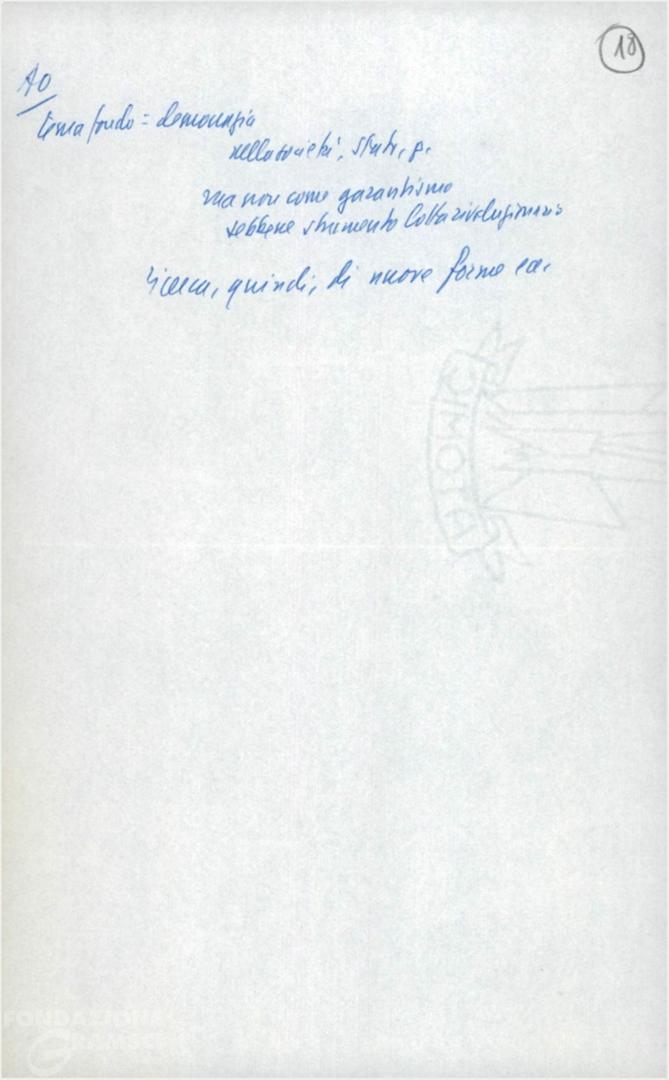 18
AO
tema fondo = democrazia
nella società, stato, p.
ma non come garantismo
sebbene strumento lotta rivoluzionaria
ricerca, quindi, di nuove forme ecc.
FONDAZIONE
GRAMSCI